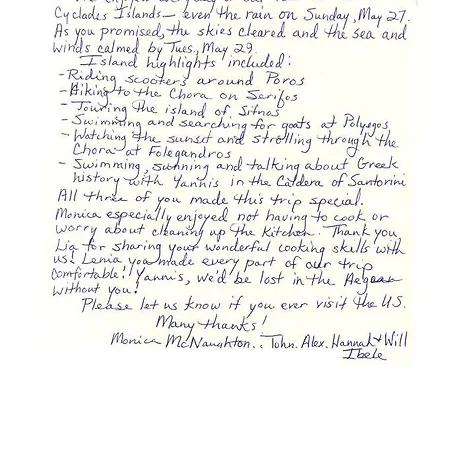 Cyclades Islands — even the rain on Sunday, May 27.
As you promised, the skies cleared and the sea and
winds calmed by Tues, May 29.
Island highlights included:
- Riding scooters around Poros
- Hiking to the Chora on Serifos
- Touring the island of Sifnos
- Swimming and searching for goats at Polyegos
- Watching the sunset and strolling through the
Chora at Folegandros
- Swimming, sunning and talking about Greek
history with Yannis in the Caldera of Santorini
All three of you made this trip special.
Monica especially enjoyed not having to cook or
worry about cleaning up the kitchen. Thank you
Lia for sharing your wonderful cooking skills with
us! Lenia you made every part of our trip
comfortable! Yannis, we'd be lost in the Aegean
without you!
Please let us know if you ever visit the U.S.
Many thanks!
Monica McNaughton.. John. Alex. Hannah & Will
Ibele